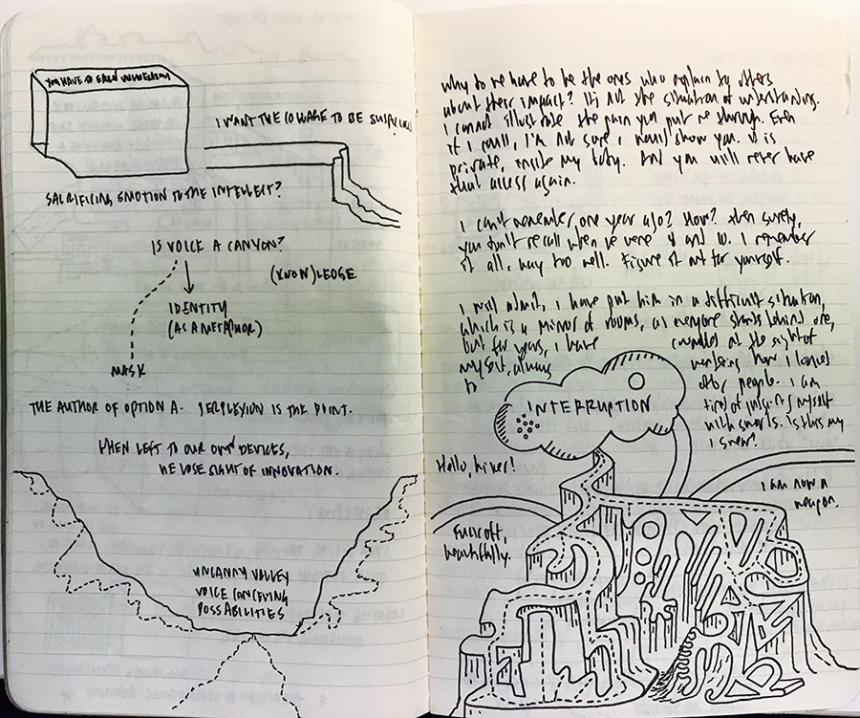 YOU HAVE TO EARN
I WANT THE COLLAGE TO BE
SACRIFICING EMOTION TO THE INTELLECT?
IS VOICE A CANYON?
(KNOW)LEDGE
IDENTITY
(AS A METAPHOR)
MASK
THE AUTHOR OF OPTION A. PERPLEXION IS THE POINT.
WHEN LEFT TO OUR OWN DEVICES,
WE LOSE SIGHT OF INNOVATION.
UNCANNY VALLEY
VOICE CONCEIVING
POSSABILITIES
Why do we have to be the ones who explain to others
about their impact? It's not the situation of understanding.
I cannot illustrate the pain you put me through. Even
if I could, I'm not sure I would show you. It is
private, inside my body. And you will never have
that access again.
I can't remember, one year ago? How? Then surely,
you don't recall when we were 9 and 10. I remember
it all, way too well. Figure it out for yourself.
I will admit, I have put him in a difficult situation,
which is a mirror of rooms, as everyone stands behind one,
but for years, I have
myself, always
to
at the sight of
how I
other people. I am
tired of myself
with Is this my
INTERRUPTION
Hello, hiker!
I am now a
weapon.
beautifully.